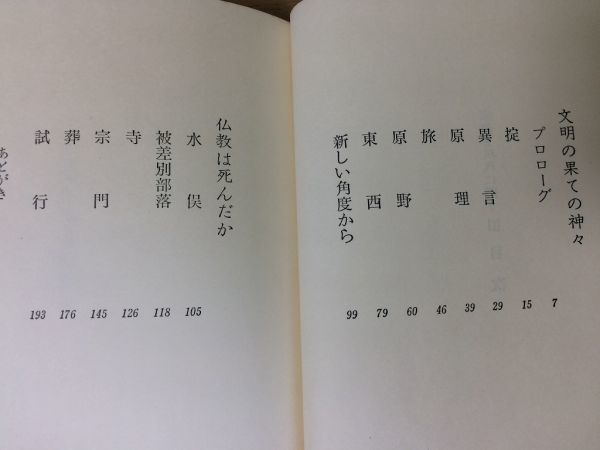 文明の果ての神々
プロローグ 7
掟 15
異言 29
原理 39
旅 46
原野 60
東西 79
新しい角度から 99
仏教は死んだか
水俣 105
被差別部落 118
寺 126
宗門 145
葬 176
試行 193
あとがき